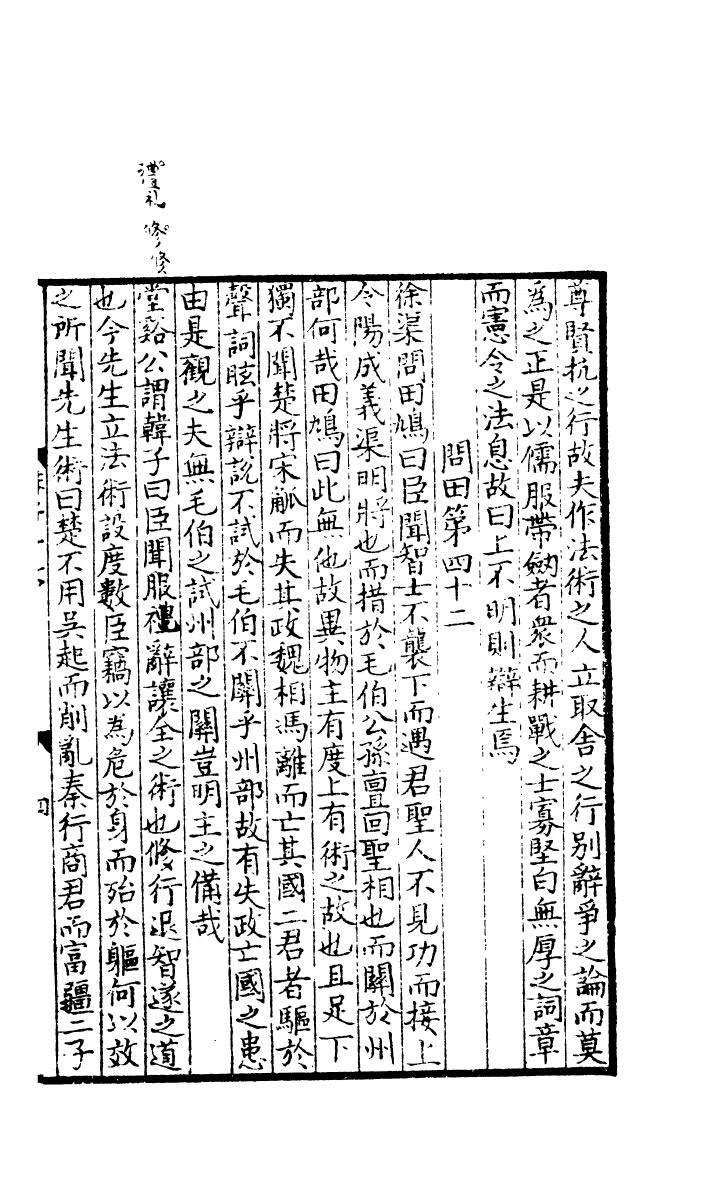 禮礼 修修
尊賢抗之行故夫作法術之人立取舍之行別辭爭之論而莫
為之正是以儒服帶劒者衆而耕戰之士寡堅白無厚之詞章
而憲令之法息故曰上不明則辯生焉
問田第四十二
徐渠問田鳩曰臣聞智士不襲下而遇君聖人不見功而接上
令陽成義渠明將也而措於毛伯公孫亶回聖相也而關於州
部何哉田鳩曰此無他故異物主有度上有術之故也且足下
獨不聞楚將宋觚而失其政魏相馮離而亡其國二君者驅於
聲詞眩乎辯說不試於毛伯不關乎州部故有失政亡國之患
由是觀之夫無毛伯之試州部之關豈明主之備哉
堂谿公謂韓子曰臣聞服禮辭讓全之術也修行退智遂之道
也今先生立法術設度數臣竊以為危於身而殆於軀何以效
之所聞先生術曰楚不用吳起而削亂秦行商君而富疆二子
四